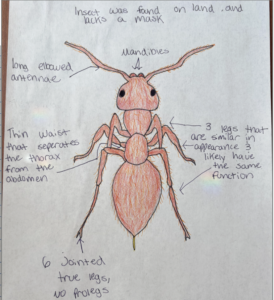 Insect was found on land and
lacks a mask
Mandibles
long elbowed
antennae
Thin waist
that seperates
the thorax
from the
abdomen
3 legs that
are similar in
appearance &
likely have
the same
function
6 Jointed
true legs,
no prolegs